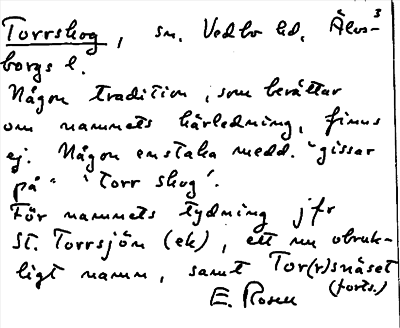 3
Torrskog, sn. Vedbo hd. Älvs-
borgs l.
Någon tradition, som berättar
om namnets härledning, finns
ej. Någon enstaka medd. "gissar
på" 'Torr skog'.
För namnets tydning jfr
St. Torrsjön (ek), ett nu obruk-
ligt namn, samt Tor(r)snäset
(forts.)
E. Rosell